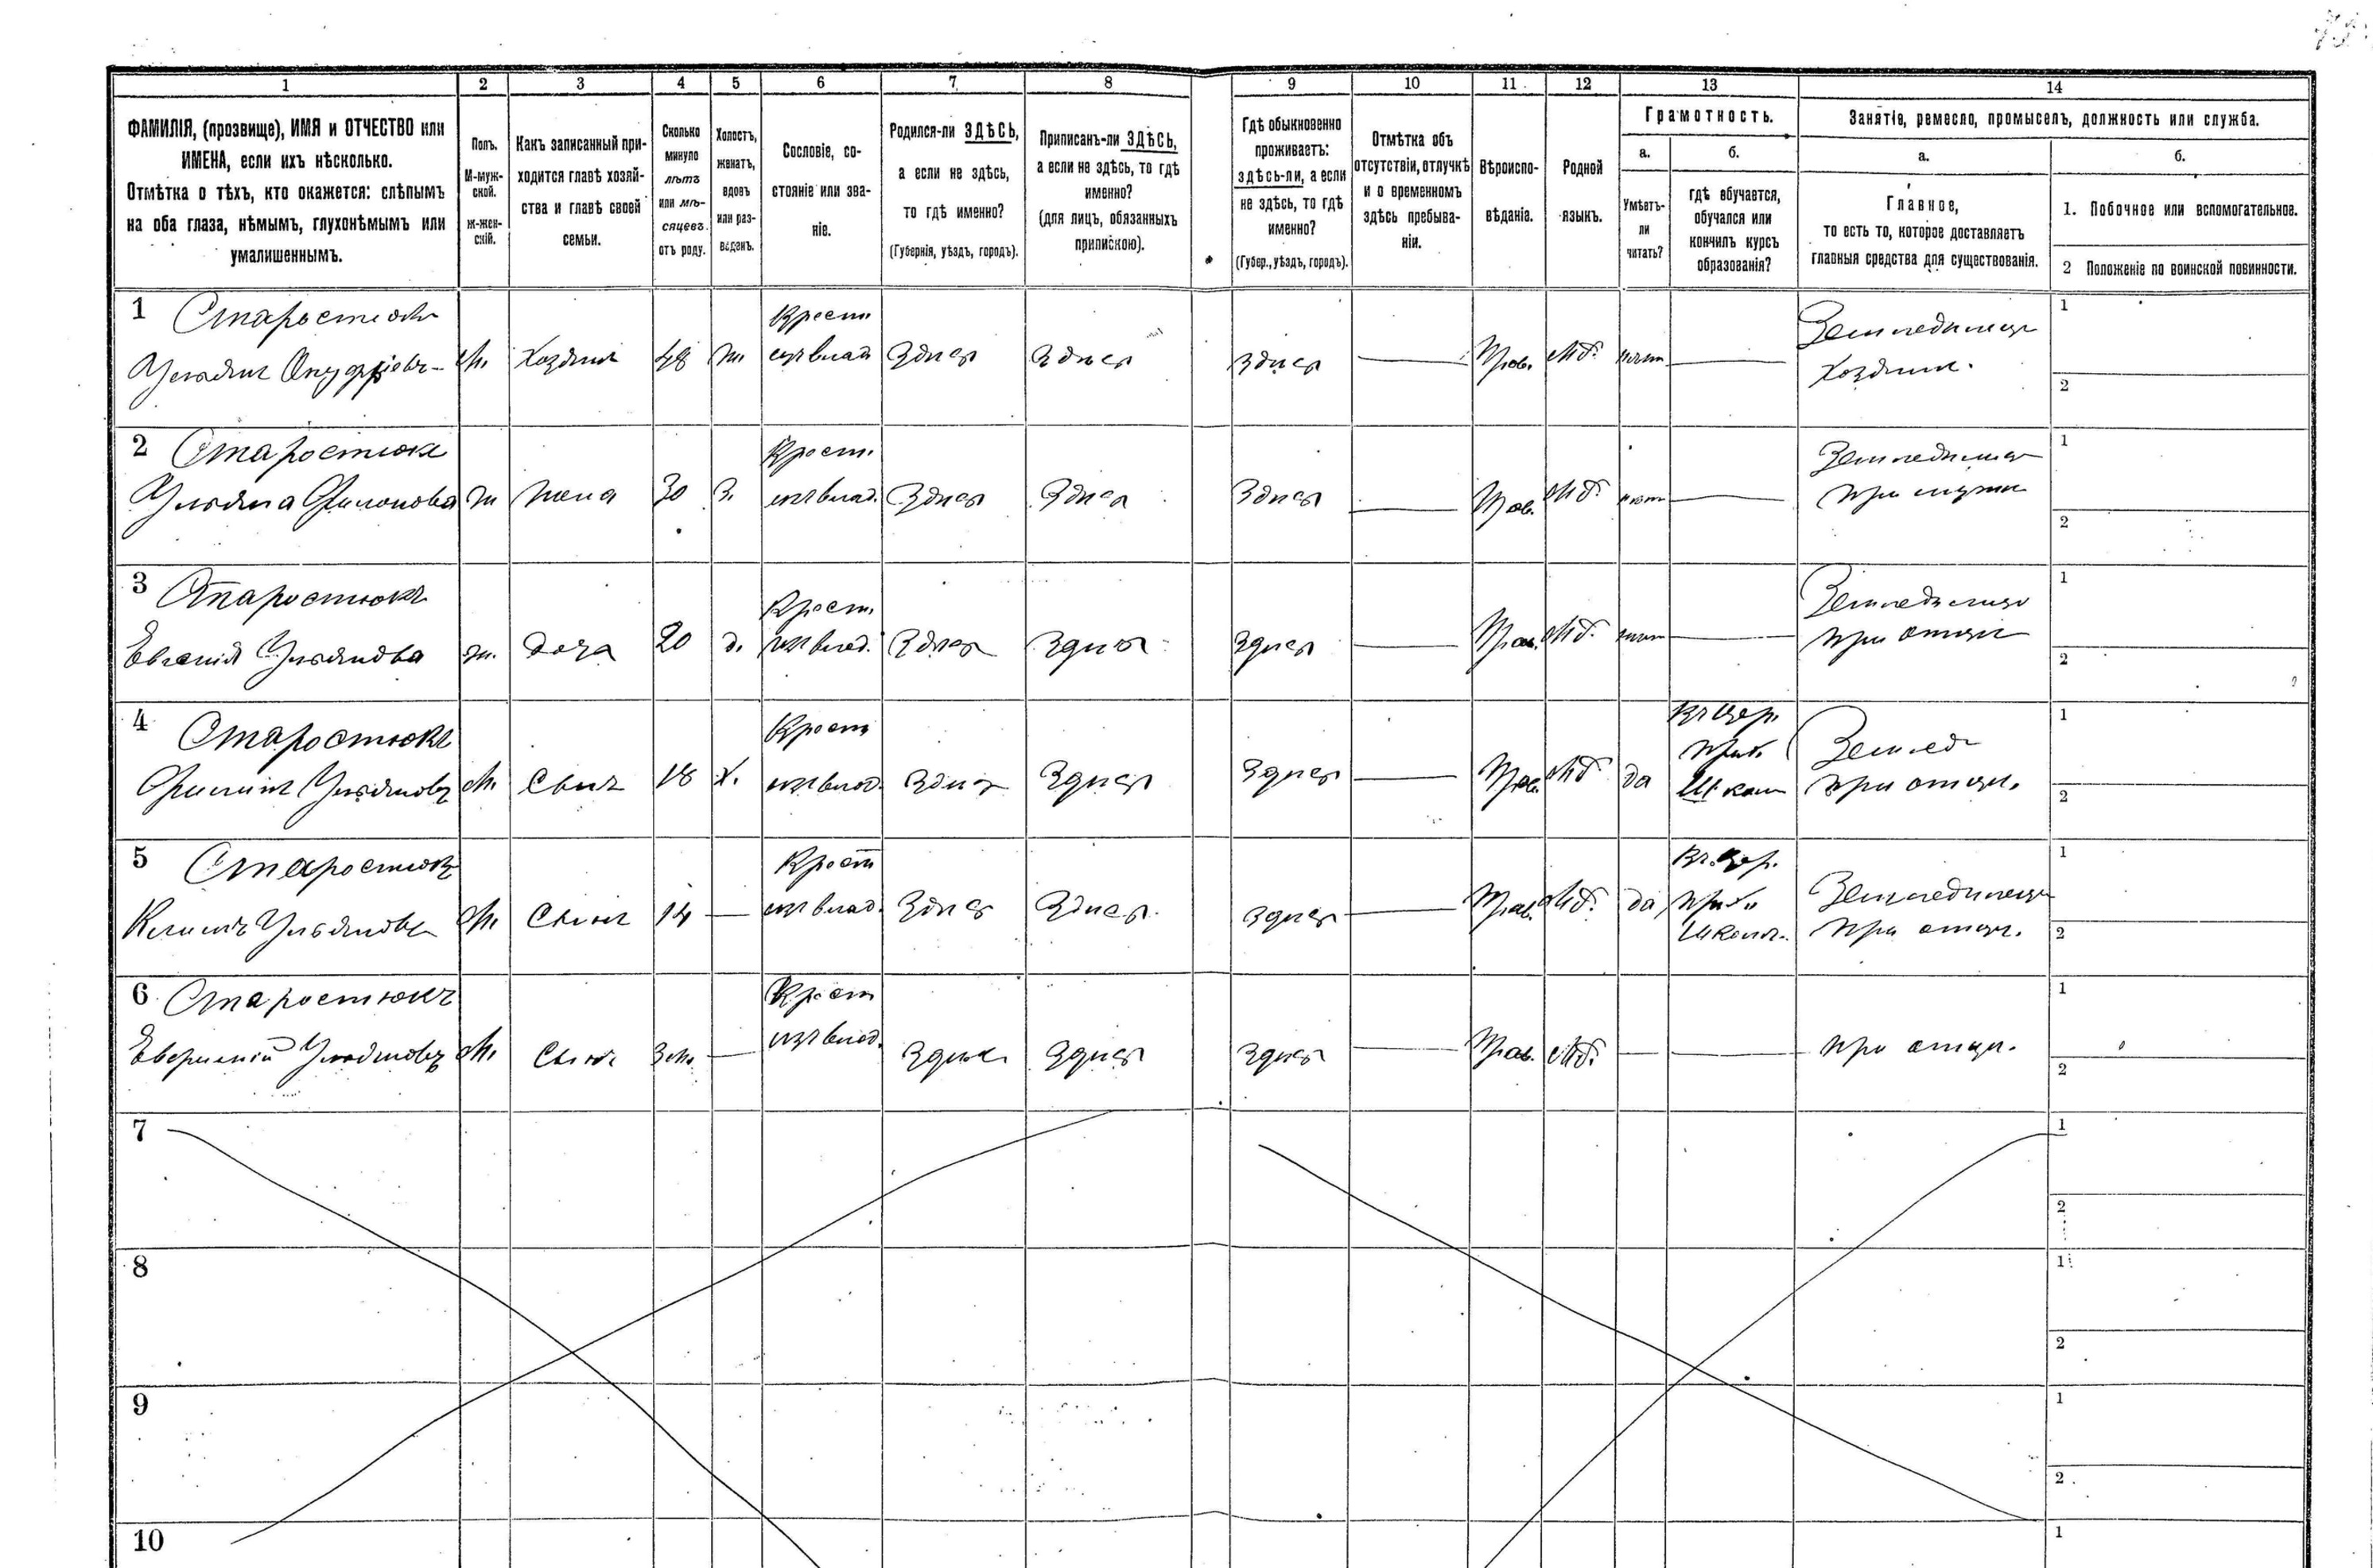 1 2 3 4 5 6 7 8 9 10 11 12 13 14
ФАМИЛІЯ, (прозвище), ИМЯ и ОТЧЕСТВО или
ИМЕНА, если ихъ нѣсколько.
Отмѣтка о тѣхъ, кто окажется: слѣпымъ
на оба глаза, нѣмымъ, глухонѣмымъ или
умалишеннымъ.
Полъ.
М-муж-
ской.
ж-жен-
скій.
Какъ записанный при-
ходится главѣ хозяй-
ства и главѣ своей
семьи.
Сколько
минуло
лѣтъ
или мѣ-
сяцевъ
отъ роду.
Холостъ,
женатъ,
вдовъ
или раз-
веденъ.
Сословіе, со-
стояніе или зва-
ніе.
Родился-ли ЗДѢСЬ,
а если не здѣсь,
то гдѣ именно?
(Губернія, уѣздъ, городъ).
Приписанъ-ли ЗДѢСЬ,
а если не здѣсь, то гдѣ
именно?
(для лицъ, обязанныхъ
припискою).
Гдѣ обыкновенно
проживаетъ:
здѣсь-ли, а если
не здѣсь, то гдѣ
именно?
(Губер., уѣздъ, городъ).
Отмѣтка объ
отсутствіи, отлучкѣ
и о временномъ
здѣсь пребыва-
ніи.
Вѣроиспо-
вѣданіе.
Родной
языкъ.
Грамотность.
а.
Умѣетъ-
ли
читать?
б.
гдѣ обучается,
обучался или
кончилъ курсъ
образованія?
Занятіе, ремесло, промыселъ, должность или служба.
а.
Главное,
то есть то, которое доставляетъ
главныя средства для существованія.
б.
1. Побочное или вспомогательное.
2 Положеніе по воинской повинности.
1 Старостюкъ Крест. Земледѣлецъ 1
Ульянъ Онуфріевъ М. Хозяинъ 48 ж. изъ влад. Здѣсь Здѣсь Здѣсь — Прав. Мд. нѣтъ — Хозяинъ. 2
2 Старостюкъ Крест. Земледѣлецъ 1
Ульяна Филонова ж жена 30 З. изъ влад. Здѣсь Здѣсь Здѣсь — Прав. Мд. нѣтъ — при мужѣ 2
3 Старостюкъ Крест. Земледѣлецъ 1
Евгенія Ульянова ж. дочь 20 д. изъ влад. Здѣсь Здѣсь Здѣсь — Прав. Мд. нѣтъ — при отцѣ 2
4 Старостюкъ Крест Въ Цер. Землед 1
Филипъ Ульяновъ М. Сынъ 18 Х. изъ влад. Здѣсь Здѣсь Здѣсь — Прав. Мд да Прих. Школ при отцѣ. 2
5 Старостюкъ Крест Въ Цер. Земледѣлецъ 1
Климъ Ульяновъ М. Сынъ 14 — изъ влад. Здѣсь Здѣсь Здѣсь — Прав. Мд. да Прих. Школѣ. при отцѣ. 2
6 Старостюкъ Крест 1
Ульяновъ М. Сынъ 3 м. — изъ влад. Здѣсь Здѣсь Здѣсь — Прав. Мд. — — при отцѣ. 2
7 1
2
8 1
2
9 1
2
10 1